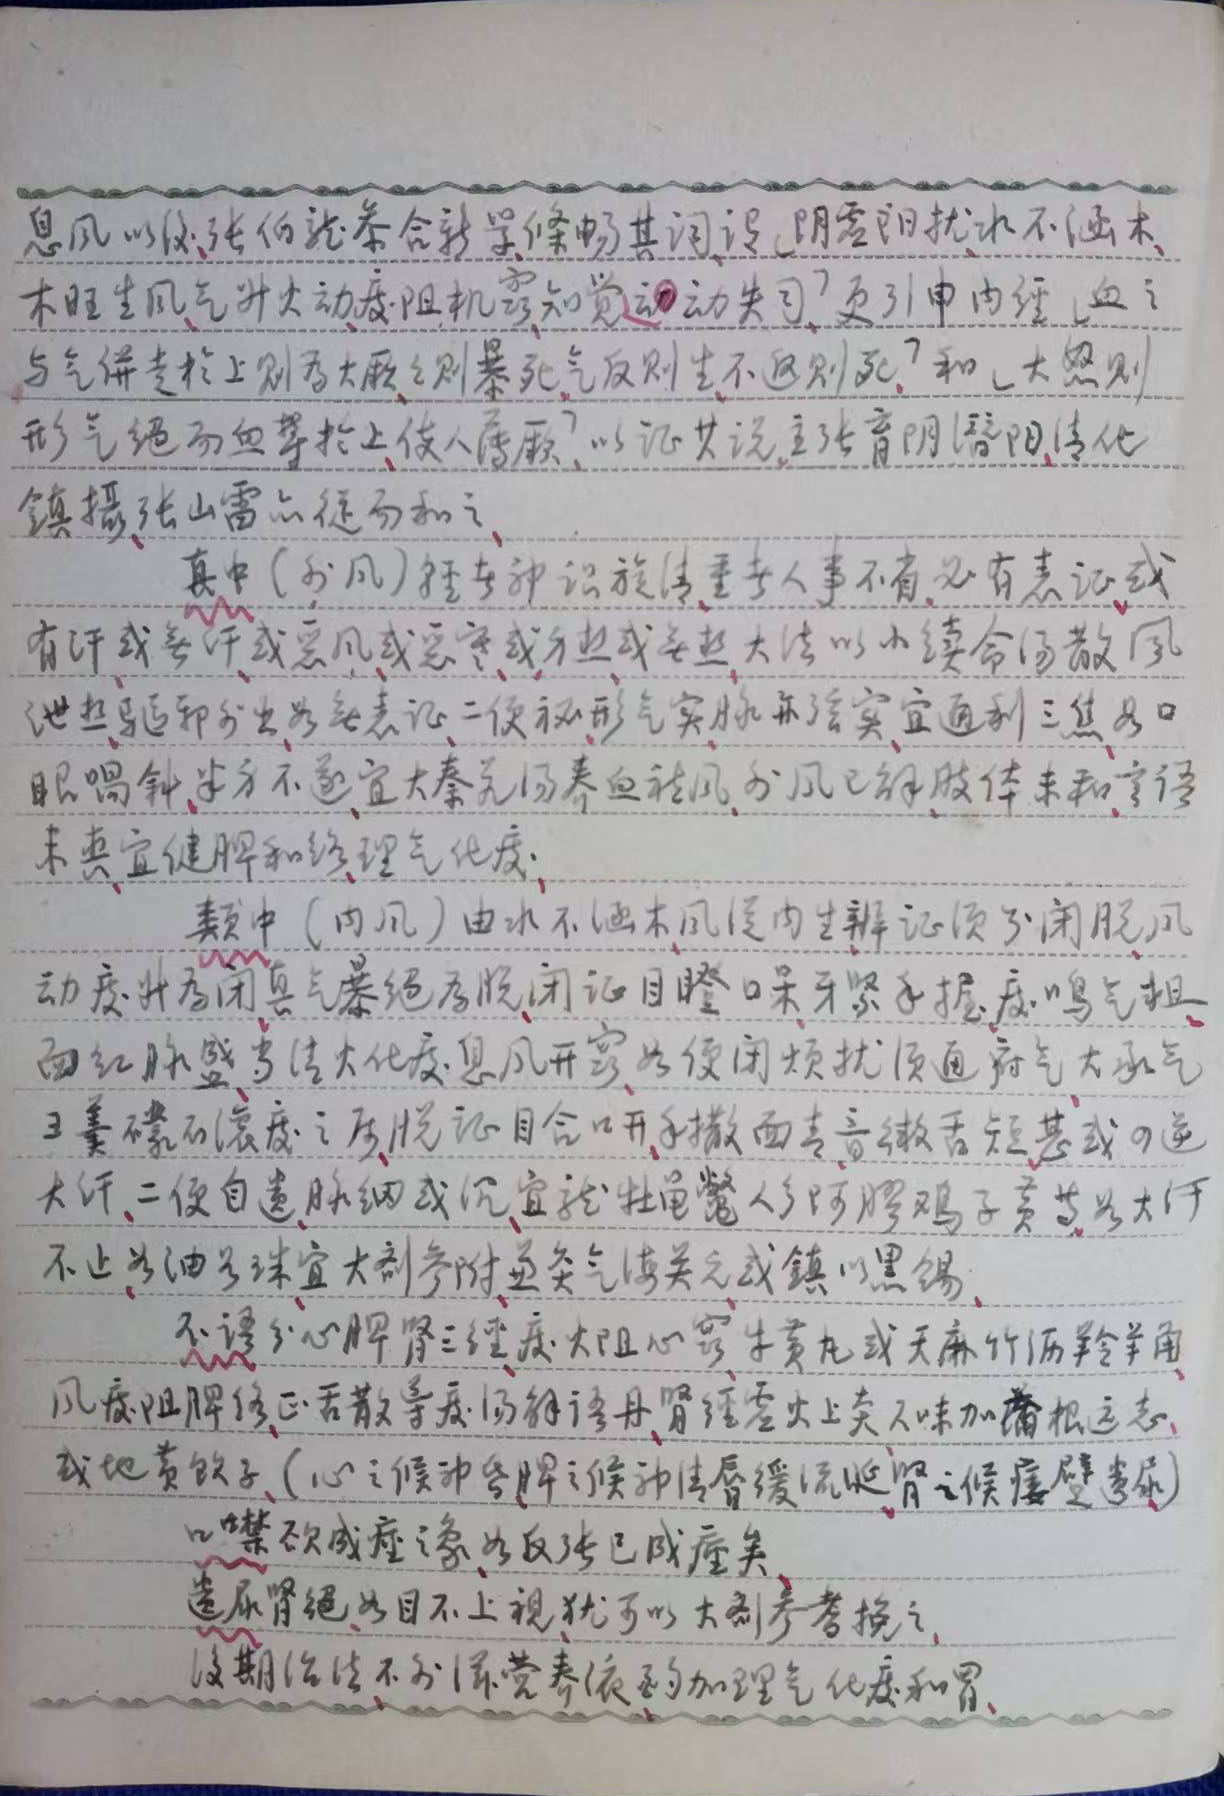 息风以後、张伯龙参合新学、條畅其词、说「阴虚阳扰、水不涵木、
木旺生风、气升火动、痰阻机窍、知觉动动失司」、更引申内經「血之
与气併走於上则为大厥、厥则暴死、气反则生、不返则死」、和「大怒则
形气绝而血菀於上、使人薄厥」、以证其说、主张育阴潛阳、清化
鎮摄、张山雷亦從而和之、
真中（外风）轻者神识旋清、重者人事不省、必有表证、或
有汗或無汗、或恶风、或恶寒、或身热或無热、大法以小續命汤散风
泄热、驅邪外出、如無表证、二便秘、形气实、脉亦弦实、宜通利三焦、如口
眼喎斜、半身不遂、宜大秦艽汤养血祛风、外风已解、肢体未和、言语
未爽、宜健脾和络、理气化痰、
類中（内风）由水不涵木、风從内生、辨证须分闭脱、风
动痰升为闭、真气暴绝为脱、闭证目瞪口呆、牙紧手握、痰鳴气粗、
面红脉盛、当清火化痰、息风开窍、如便闭烦扰、须通府气、大承气
礞石滾痰之属、脱证目合口开、手撒面青、音微舌短、甚或四逆
大汗、二便自遗、脉细或沉、宜龙牡龟鱉人参阿膠鸡子黄等、如大汗
不止、如油如珠、宜大剂参附、並灸气海关元、或鎮以黑锡、
不語分心脾肾三經、痰火阻心窍、牛黄丸或天麻竹沥羚羊角、
风痰阻脾络、正舌散、导痰汤、解语丹、肾經虚火上炎、六味加菖根远志、
或地黄飲子、（心之候神昏、脾之候神清唇缓流涎、肾之候痿躄遗尿）
口噤欲成痙之象、如反张已成痙矣、
遗尿肾绝、如目不上视、犹可以大剂参耆挽之、
後期治法、不外滋营养液、酌加理气化痰和胃、